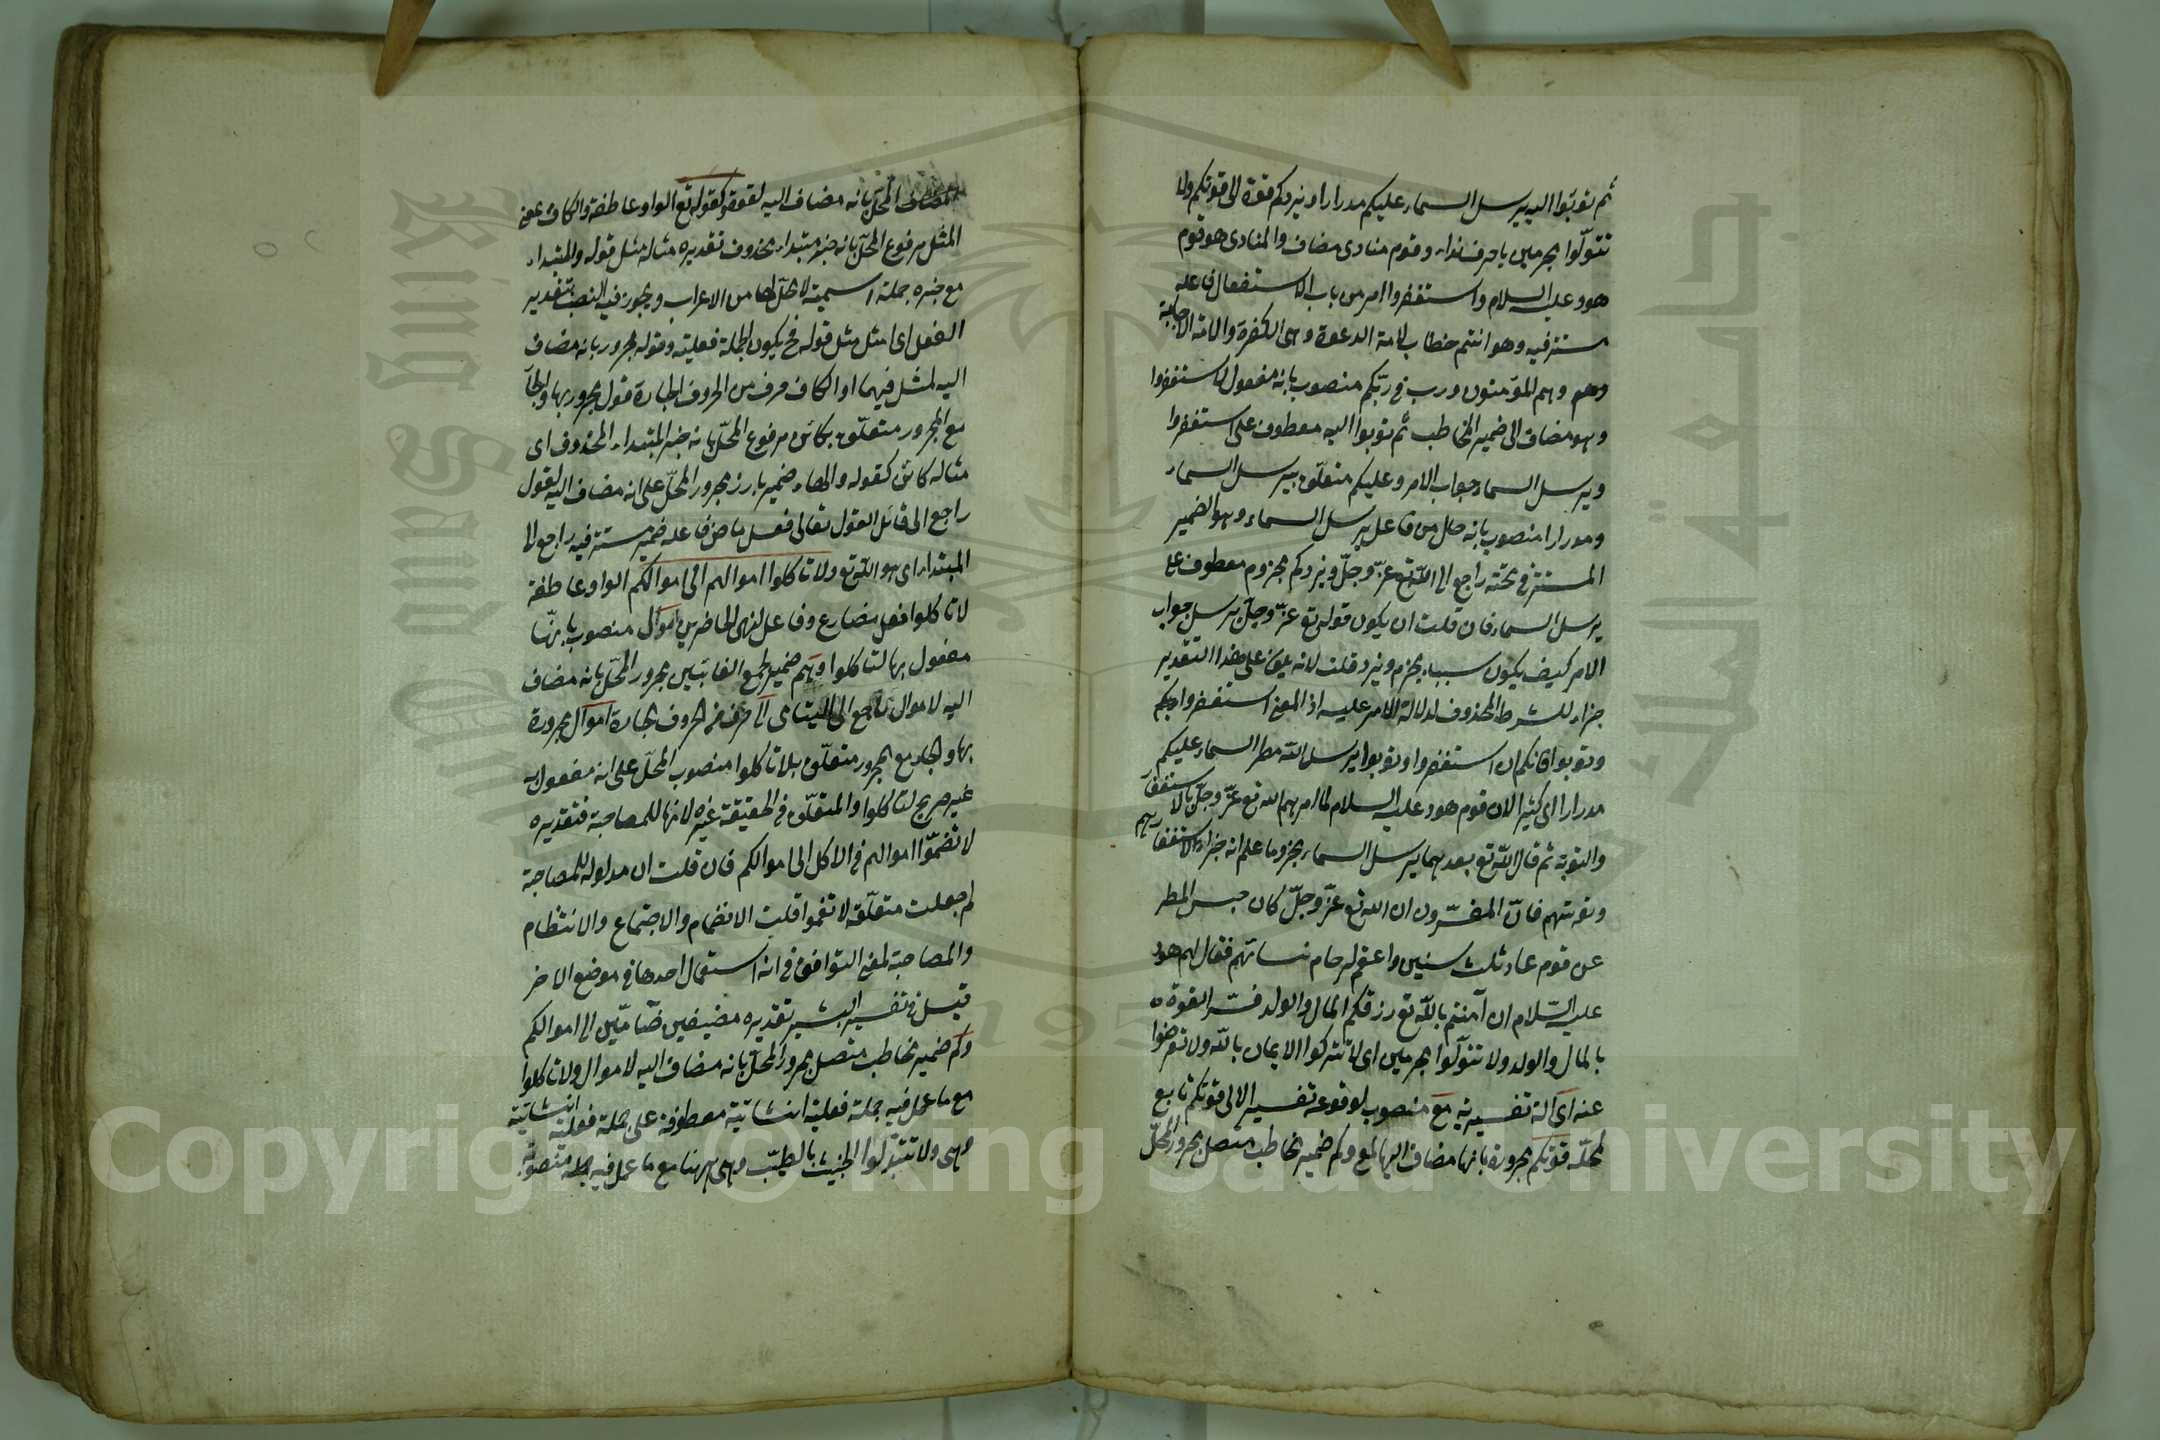 ثم توبوا اليه يرسل السماء عليكم مدرارا ويزدكم قوة الى قوتكم ولا
تتولّوا مجرمين يا حرف نداء وقوم منادى مضاف والمنادى هو قوم
هود عليه السلام واستغفروا امر من باب الاستفعال فاعله
مستتر فيه وهو انتم خطاب لامة الدعوة وهى الكفرة والامة الاجابة
وهم وهم المؤمنون ورب فى ربّكم منصوب بانه مفعول لاستغفروا
وهو مضاف الى ضمير المخاطب ثم توبوا اليه معطوف على استغفروا
ويرسل السماء جواب الامر وعليكم متعلّق بيرسل السماء
ومدرارا منصوب بانه حال من فاعل يرسل السماء وهو الضمير
المستتر فى تحته راجع الى اللّه تع عزّ وجلّ ويزدكم مجزوم معطوف على
يرسل السماء فان قلت ان يكون قوله تع عزّ وجلّ يرسل جواب
الامر كيف يكون سببا بجزم ويزد قلت لانه على هذا التقدير
جزاء للشرط المحذوف لدلالة الامر عليه اذ المعنى استغفروا ربكم
وتوبوا فانكم ان استغفروا وتوبوا يرسل اللّه مطر السماء عليكم
مدرارا اى كثيرا لان قوم هود عليه السلام لما امرهم اللّه تع عزّ وجلّ بالاستغفار
والتوبة ثم قال اللّه تع بعدهما يرسل السماء بجزوما علم انه جزاء لاستغفارهم
وتوبتهم فانّ المفسّرون ان اللّه تع عزّ وجلّ كان حبس المطر
عن قوم عاد ثلث سنين واعقم ارحام نسائهم فقال لهم هود
عليه السّلام ان آمنتم باللّه تع رزقكم المال والولد فسّر القوة
بالمال والولد ولا تتولّوا مجرمين اى لا تتركوا الايمان باللّه ولا تعرضوا
عنه اى آلة تفسيرية مع منصوب لوقوعه تفسير الى قوتكم تابع
لمحلّه قوتكم مجرورة بانها مضاف اليها لمع وكم ضمير مخاطب متصل مجرور المحلّ
المضاف المحلّ بانه مضاف اليه لقوة وكقوله تع الواو عاطفة والكاف بمعنى
المثل مرفوع المحلّ بانه خبر مبتداء محذوف تقديره مثاله مثل قوله والمبتداء
مع خبره جملة اسمية لا محلّ لها من الاعراب ويجوز فيه النصب بتقدير
الفعل اى امثل مثل قوله فح يكون الجملة فعلية وقوله مجرور بانه مضاف
اليه لمثل فيهما او الكاف حرف من الحروف الجارة قول مجرور بها والجار
مع المجرور متعلّق بكائن مرفوع المحلّ بانه خبر المبتداء المحذوف اى
مثاله كائن كقوله والهاء ضمير بارز مجرور المحلّ على انه مضاف اليه لقول
راجع الى قائل القول تعالى فعل ماض فاعله ضمير مستتر فيه راجع الى
المبتداء اى هو اللّه تع ولا تاكلوا اموالهم الى اموالكم الواو عاطفة
لا تاكلوا فعل مضارع وفاعل لنهى الحاضرين اموال منصوب بانها
مفعول بها لتاكلوا وهم ضمير لجمع الغائبين مجرور المحلّ بانه مضاف
اليه لاموال راجع الى اليتامى الى حرف من الحروف الجارة اموال مجرورة
بها والجار مع المجرور متعلّق بلا تاكلوا منصوب المحلّ على انه مفعول به
غير صريح لتاكلوا والمتعلّق فى الحقيقة غيره لانها للمصاحبة فتقديره
لا تضمّوا اموالهم فى الاكل الى اموالكم فان قلت ان مدلوله للمصاحبة
لم جعلت متعلّقة لا تضموا قلت الانضمام والاجتماع والانتظام
والمصاحبة لمعنى التوافق فى انه استعمال احدها فى موضع الاخر
قيل فى تفسير البشير تقديره مضيفين ضآمّين الى اموالكم
وكم ضمير مخاطب متصل مجرور المحلّ بانه مضاف اليه لاموال ولا تاكلوا
مع ما عمل فيه جملة فعلية انشائية معطوفة على جملة فعلية انشائية
وهى ولا تتبدّلوا الخبيث بالطيّب وهى ههنا مع ما عمل فيه جملة منصوبة
Copyright © King Saud University
King Saud University
جامعة الملك سعود
1957